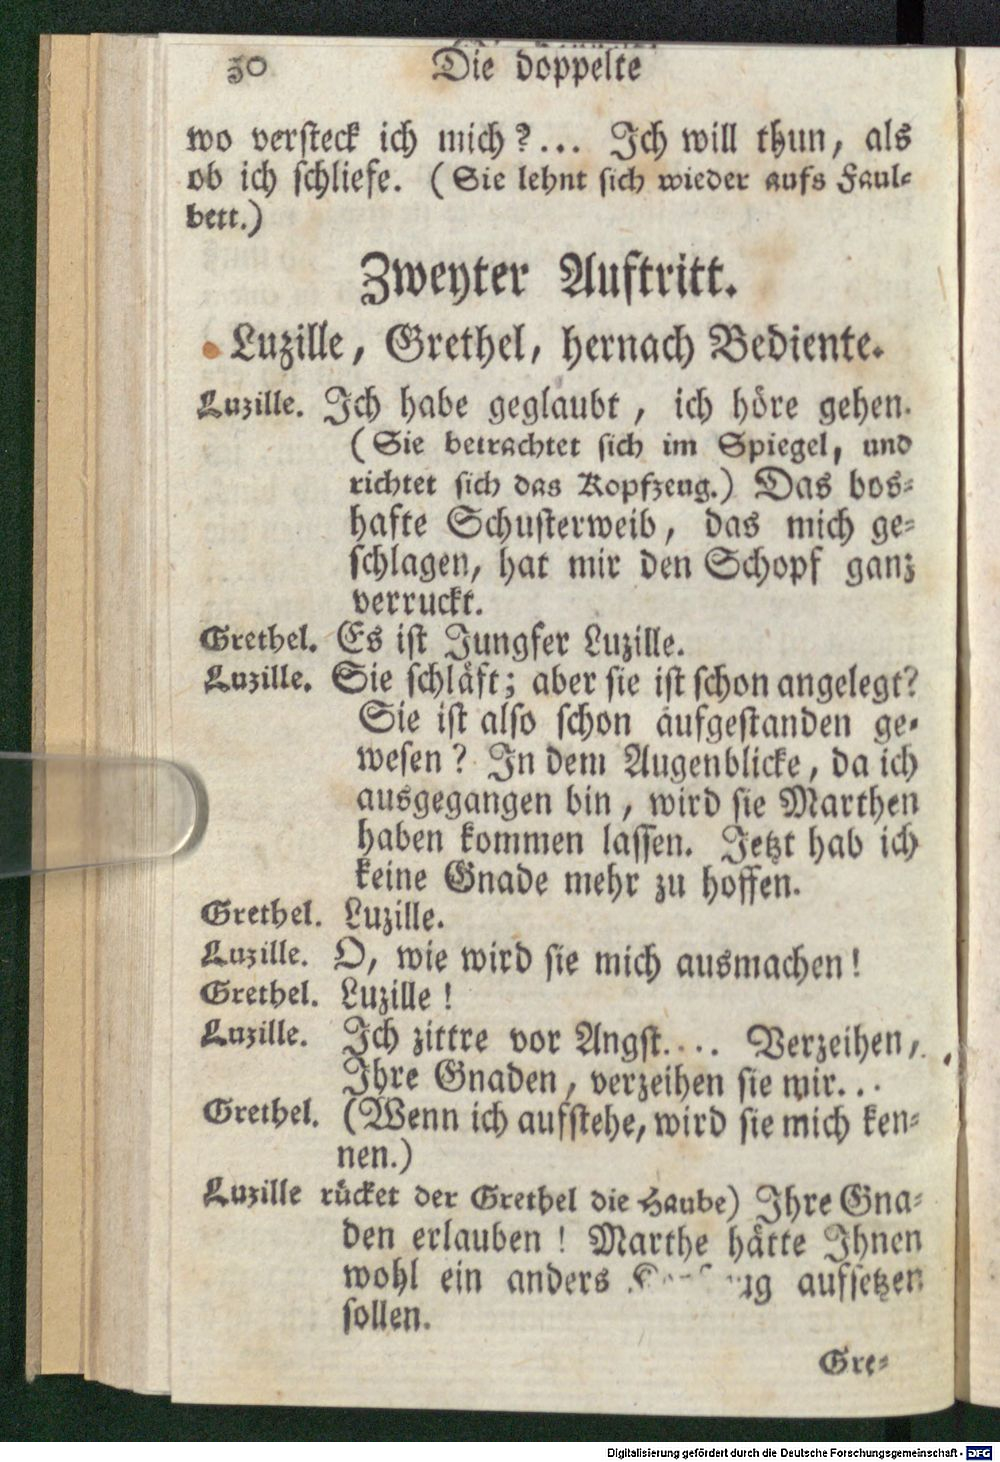 30 Die doppelte
wo versteck ich mich?... Ich will thun, als
ob ich schliefe. (Sie lehnt sich wieder aufs Faul-
bett.)
Zweyter Auftritt.
Luzille, Grethel, hernach Bediente.
Luzille. Ich habe geglaubt, ich höre gehen.
(Sie betrachtet sich im Spiegel, und
richtet sich das Kopfzeug.) Das bos-
hafte Schusterweib, das mich ge-
schlagen, hat mir den Schopf ganz
verruckt.
Grethel. Es ist Jungfer Luzille.
Luzille. Sie schläft; aber sie ist schon angelegt?
Sie ist also schon aufgestanden ge-
wesen? In dem Augenblicke, da ich
ausgegangen bin, wird sie Marthen
haben kommen lassen. Jetzt hab ich
keine Gnade mehr zu hoffen.
Grethel. Luzille.
Luzille. O, wie wird sie mich ausmachen!
Grethel. Luzille!
Luzille. Ich zittre vor Angst.... Verzeihen,
Ihre Gnaden, verzeihen sie mir...
Grethel. (Wenn ich aufstehe, wird sie mich ken-
nen.)
Luzille rücket der Grethel die Haube) Ihre Gna-
den erlauben! Marthe hätte Ihnen
wohl ein anders aufsetzen
sollen.
Gre-
Digitalisierung gefördert durch die Deutsche Forschungsgemeinschaft - DFG